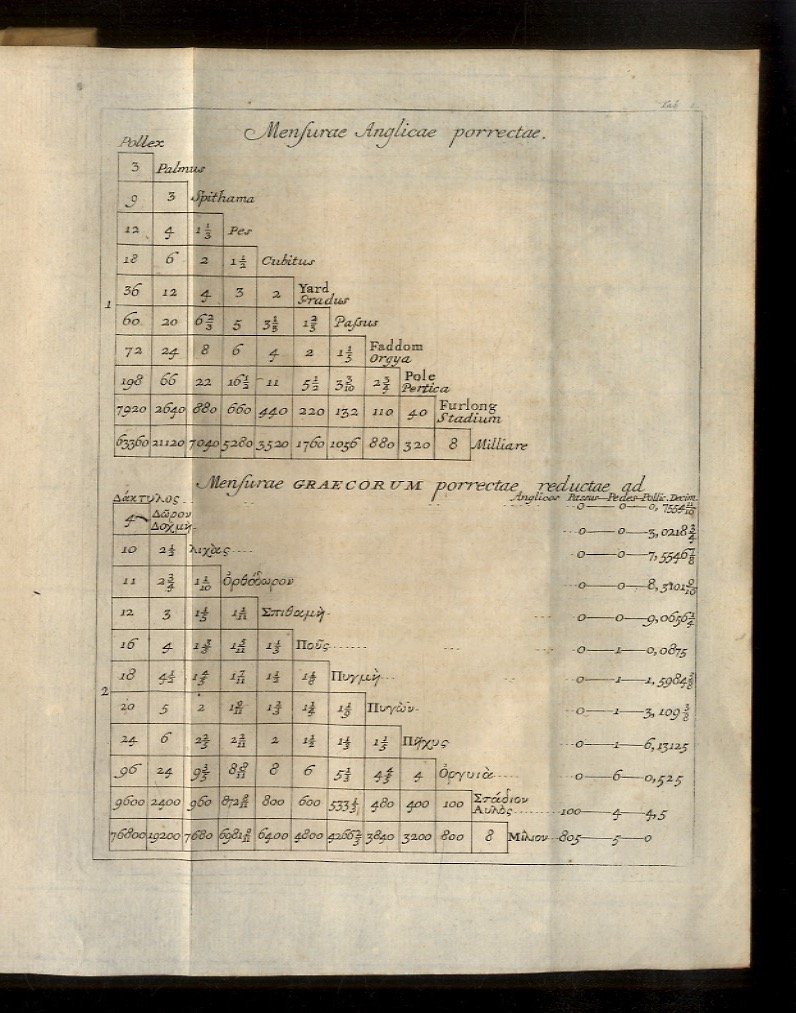 Tab. 1
Menſurae Anglicae porrectae.
Pollex
3 Palmus
9 3 Spithama
12 4 1 1/3 Pes
18 6 2 1 1/2 Cubitus
36 12 4 3 2 Yard
Gradus
1
60 20 6 2/3 5 3 1/3 1 2/3 Paſsus
72 24 8 6 4 2 1 1/5 Faddom
Orgya
198 66 22 16 1/2 11 5 1/2 3 3/10 2 3/4 Pole
Pertica
7920 2640 880 660 440 220 132 110 40 Furlong
Stadium
63360 21120 7040 5280 3520 1760 1056 880 320 8 Milliare
Menſurae GRAECORUM porrectae reductae ad
Δάκτυλος Anglicos Paſsus Pedes Pollic. Decim.
4 Δῶρον 0 0 0,7554 11/16
Δοχμὴ 0 0 3,0218 3/4
10 2 1/2 Λιχὰς 0 0 7,5546 7/8
11 2 3/4 1 1/10 Ὀρθόδωρον 0 0 8,3101 9/16
12 3 1 1/5 1 1/11 Σπιθαμὴ 0 0 9,0656 1/4
16 4 1 3/5 1 5/11 1 1/3 Ποῦς 0 1 0,0875
18 4 1/2 1 4/5 1 7/11 1 1/2 1 1/8 Πυγμὴ 0 1 1,5984 3/8
2
20 5 2 1 9/11 1 2/3 1 1/4 1 1/9 Πυγὼν 0 1 3,109 3/8
24 6 2 2/5 2 2/11 2 1 1/2 1 1/3 1 1/5 Πῆχυς 0 1 6,13125
96 24 9 3/5 8 8/11 8 6 5 1/3 4 4/5 4 Ὀργυιὰ 0 6 0,525
9600 2400 960 872 8/11 800 600 533 1/3 480 400 100 Στάδιον
Αυλὸς 100 4 4,5
76800 19200 7680 6981 9/11 6400 4800 4266 2/3 3840 3200 800 8 Μίλιον 805 5 0